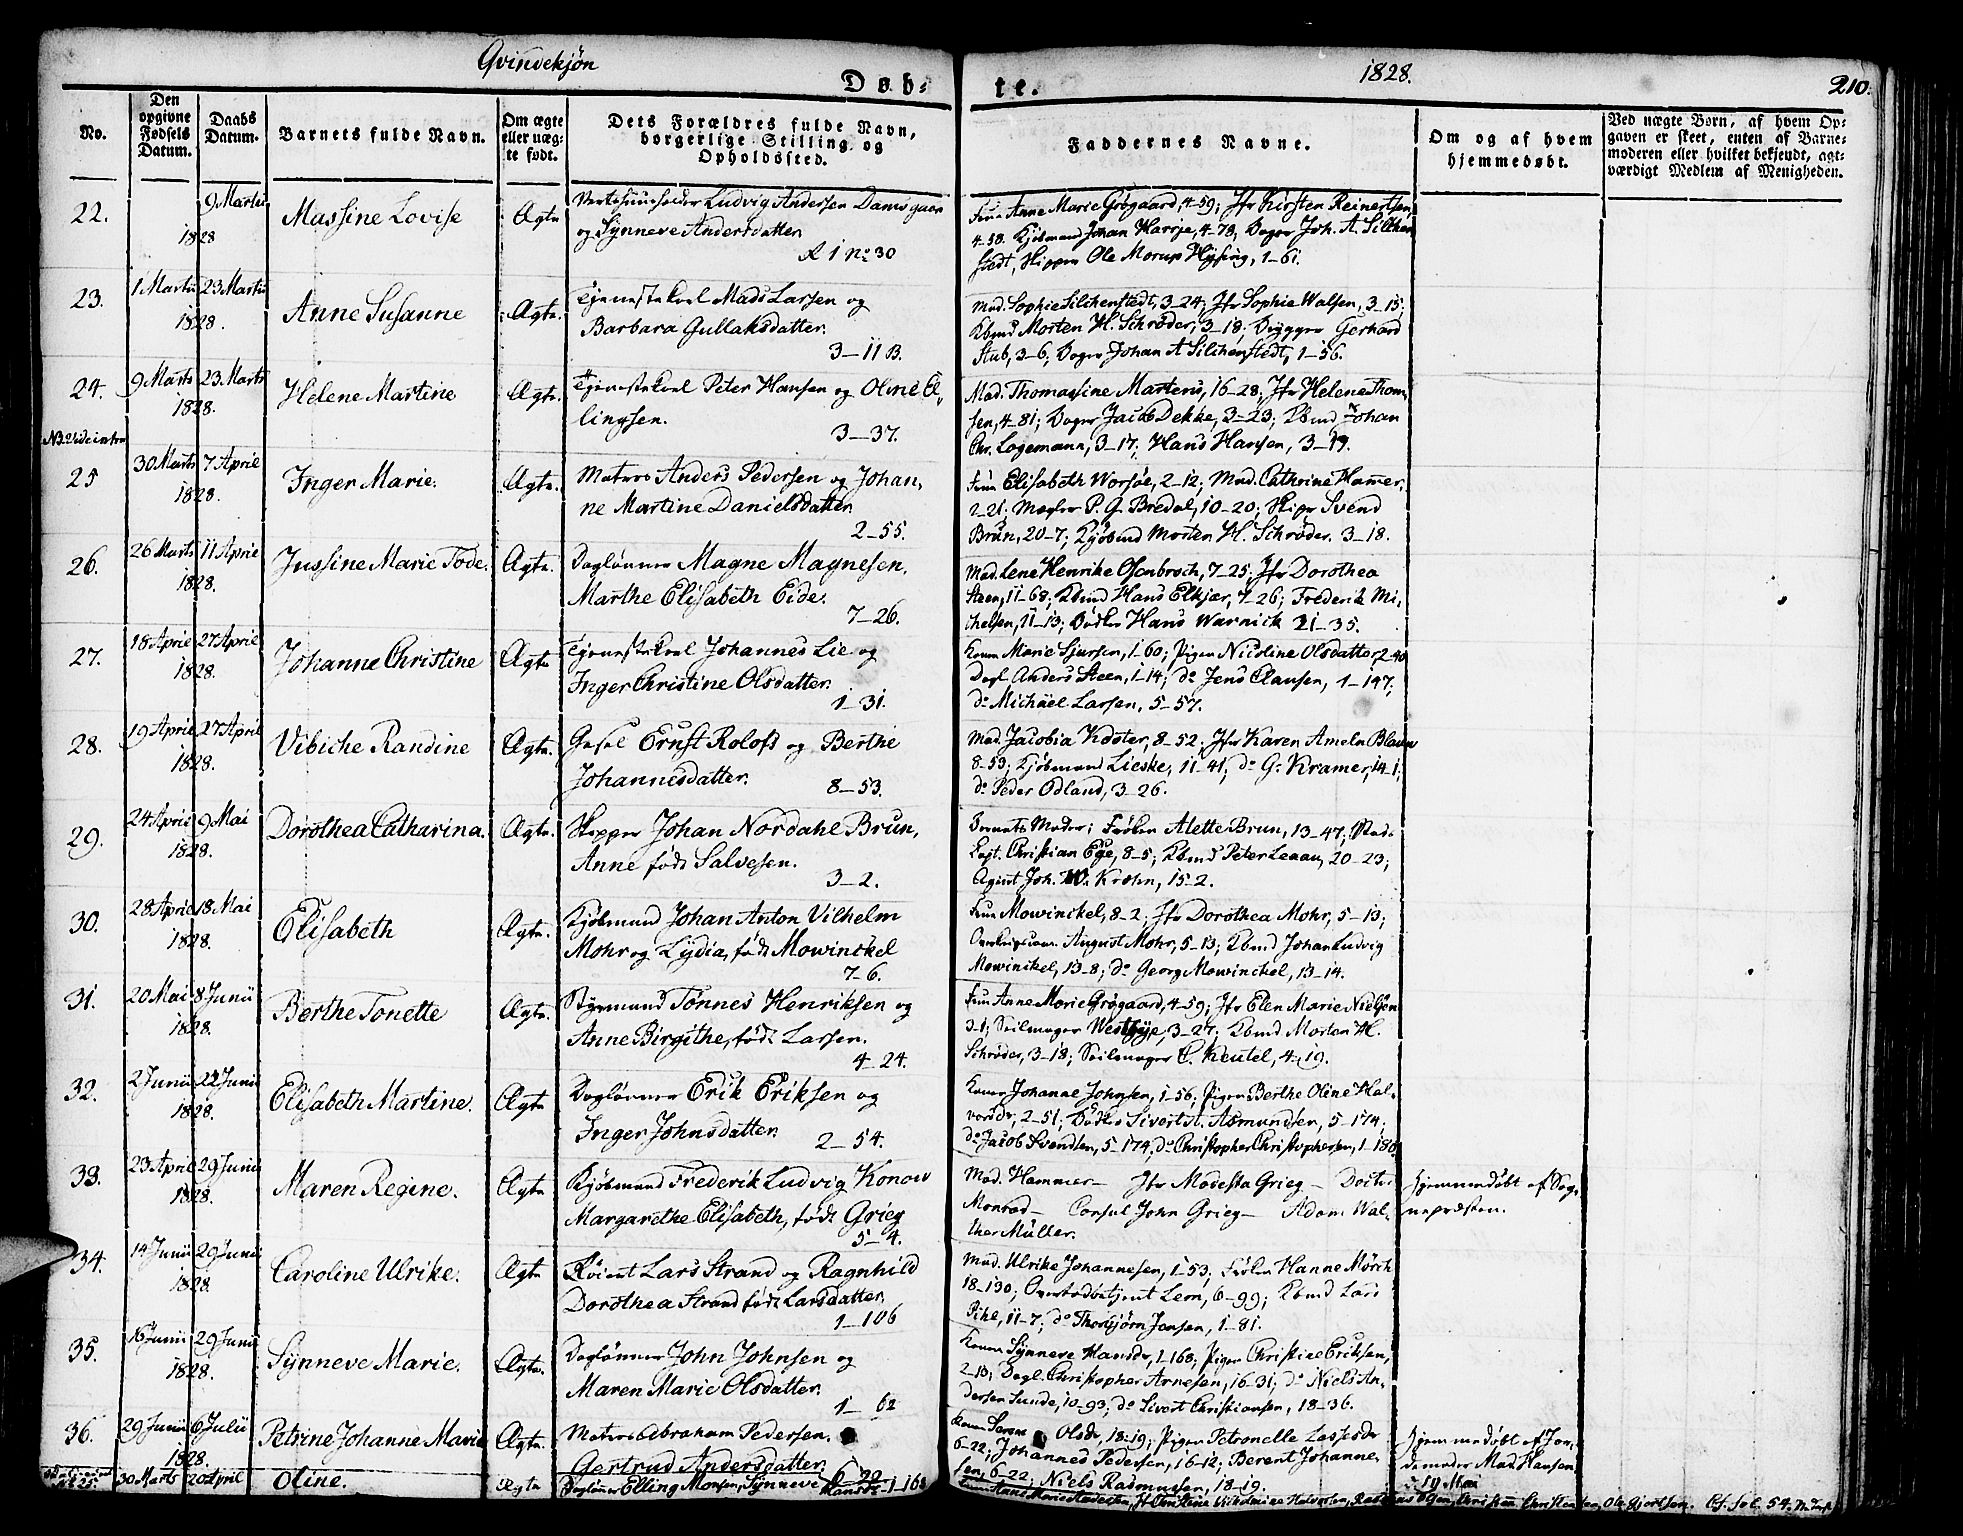 Qvindekjøn
Døb-
te.
1828.
210.
No.
Den opgivne Fødsels Datum.
Daabs Datum.
Barnets fulde Navn.
Om ægte eller uægte født.
Dets Forældres fulde Navn, borgerlige Stilling og Opholdssted.
Faddernes Navne.
Om og af hvem hjemmedøbt.
Ved uægte Børn, af hvem Op-
gaven er skeet, enten af Barne-
moderen eller hvilket bekjendt, agt-
værdigt Medlem af Menigheden.
22.
9 Martii
1828
Massine Lovise
Ægte
Ludvig Andersen Damsgaard
og Synneve Andersdatter
R 1 no 30
Anne Marie Grøgaard, 4-59; Jfr Kirsten Reinertsen,
4-38. Kjøbmand Johan Harrje, 4-78, Bager Joh. A. Silchen
stedt, Skipper Ole Morup Hysing, 1-61.
23.
1 Martii 23 Martii
1828.
Anne Susanne
Ægte.
Tjenestekarl Mads Larsen og
Barbara Gullaksdatter.
3-11 B.
Mad. Sophie Silchenstedt, 3-24; Jfr Sophie Walsen, 3-15;
Kbmd Morten H. Schrøder, 3-18; Brygger Gerhard
Stub, 3-6; Bager Johan A Silchenstedt, 1-56.
24.
9 Marts 23 Marts
1828.
Helene Martine
Ægte.
Tjenestekarl Peter Hansen og Oline El-
lingsen.
3-37.
Mad. Thomassine Martens, 16-28; Jfr Helene Thom-
sen, 4-81; Bager Jacob Dekke, 3-23; Kbmd Johan
Chr. Logemann, 3-17; Hans Hansen, 3-19.
25
30 Marts 7 April
1828.
Inger Marie.
Ægte.
Matros Anders Pedersen og Johan-
ne Martine Danielsdatter
2-55.
Frue Elisabeth Worsøe, 2-12; Mad. Cathrine Hamer,
2-21; Mægler P. G. Bredal, 10-20; Skipr Svend
Brun, 20-7; Kjøbmd Morten H. Schrøder. 3-18.
26.
26 Marts 11 April
1828.
Jussine Marie Tode.
Ægte.
Daglønner Magne Magnesen,
Marthe Elisabeth Eide.
7-26.
Mad. Lene Henrike Osenbroch, 7-25; Jfr Dorothea
Steen, 11-68; Kbmd Hans Elkjær, 7-26; Frederik Mi-
chelsen, 11-13; Bødker Hans Warnick 21-35.
27.
18 April 27 April
1828.
Johanne Christine
Ægte
Tjenestekarl Johannes Lie og
Inger Christine Olsdatter.
1-31.
Konen Marie Sjursen, 1-60; Pigen Nicoline Olsdatter, 2-40
Dagl. Anders Steen, 1-14; do Jens Clausen, 1-147;
do Michael Larsen, 5-57.
28.
19 April 27 April
1828.
Vibiche Randine
Ægte.
Gesel Ernst Roloff og Berthe
Johannesdatter.
8-53.
Mad. Jacobia Koster, 8-52; Jfr Karen Ameln Blauw
8-53; Kjøbmand Lieske, 11-41; do G. Kramer, 14-1;
do Peder Odland, 3-26.
29.
24 April 9 Mai
1828.
Dorothea Catharina.
Ægte.
Skipper Johan Nordahl Brun,
Anne født Salvesen.
3-2.
Barnets Moder; Frøken Alette Brun, 13-47; Stads-
Capt. Christian Ege, 8-5; Kbmd Peter Leaau, 20-23;
Agent Joh. W. Krohn, 15-2.
30.
28 April 18 Mai
1828.
Elisabeth
Ægte.
Kjøbmand Johan Anton Vilhelm
Mohr og Lydia, født Mowinckel
7-6.
Frue Mowinckel, 8-2; Jfr Dorothea Mohr, 5-13;
August Mohr, 5-13; Kbmd Johan Ludvig
Mowinckel, 13-8; do Georg Mowinckel, 13-14.
31.
20 Mai 8 Junii
1828.
Berthe Tonette
Ægte.
Styrmand Tønnes Henriksen og
Anne Birgithe, født Larsen.
4-24.
Frue Anne Marie Grøgaard, 4-59; Jfr Elen Marie Nielsen
3-1; Seilmager Westbye, 3-27; Kbmd Morten H.
Schrøder, 3-18; Seilmager C. Keutel, 4-19.
32.
2 Junii 22 Junii
1828.
Elisabeth Martine.
Ægte
Daglønner Erik Eriksen og
Inger Johnsdatter.
2-54.
Konen Johanne Johnsen, 1-56; Pigen Berthe Oline Hal-
vorsdr, 2-51; Bødker Sivert A. Asmundsen, 5-174;
do Jacob Svendsen, 5-174, do Christopher Christophersen, 1-180
33.
23 April 29 Junii
1828.
Maren Regine.
Ægte
Kjøbmand Frederik Ludvig Konow
Margarethe Elisabeth, født Grieg
5-4.
Mad. Hammer- Jfr Modesta Grieg- Doctor
Monrad- Consul John Grieg- Adam Wal-
ther Müller.
Hjemmedøbt af Sog-
nepræsten.
34.
14 Junii 29 Junii
1828.
Caroline Ulrike.
Ægte
Lars Strand og Ragnhild
Dorothea Strand født Larsdatter
1-106
Mad. Ulrike Johannesen, 1-53, Frøken Hanne Mørch
18-130; Lem, 6-99; Kbmd Lars
Pihl, 11-7; do Thorbjørn Jonsen, 1-81.
35.
16 Junii 29 Junii
1828.
Synneve Marie.
Ægte.
Daglønner John Johnsen og
Maren Marie Olsdatter.
1-62
Konen Synneve Hansdr, 1-168; Pigen Christine Eriksen,
2-13; Dagl. Christopher Arnesen, 16-31; do Niels An-
dersen Sunde, 10-93; do Sivert Christiansen, 18-36.
36.
29 Junii 6 Julii
1828.
Petrine Johanne Marie
Ægte.
Matros Abraham Pedersen.
Gertrud Andersdatter.
6-22
Konen Olsdr, 18-19; Pigen Petronelle Lassesdr
6-22; Johannes Pedersen, 16-12; Berent Johanne-
sen, 6-22; Niels Rasmussen, 18-19.
Hjemmedøbt af Jor-
demoder Mad. Hansen
30 Marts 20 April
Oline.
Ægte
Dagløner Elling Monsen, Synneve Hansdr 1-168
Ole Gjertsen. Cf. fol. 54.